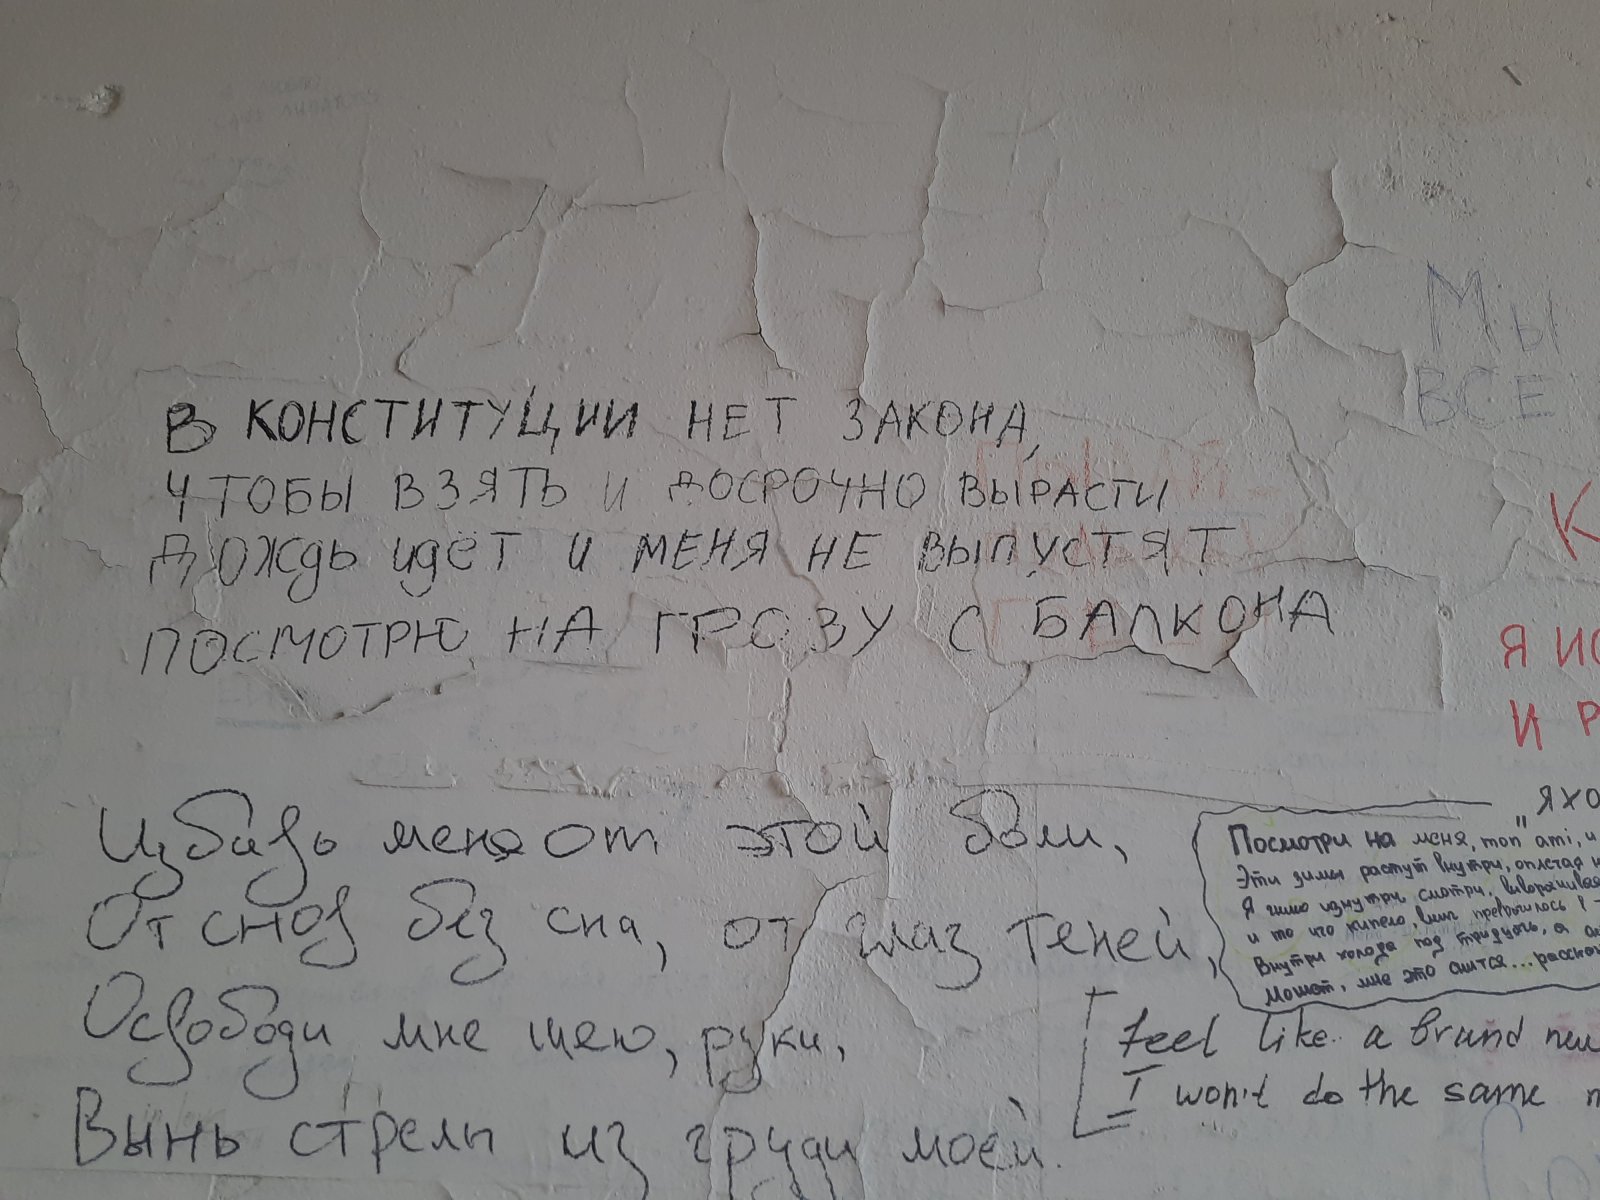 В КОНСТИТУЦИИ НЕТ ЗАКОНА,
ЧТОБЫ ВЗЯТЬ И ДОСРОЧНО ВЫРАСТИ
ДОЖДЬ ИДЁТ И МЕНЯ НЕ ВЫПУСТЯТ
ПОСМОТРЮ НА ГРОЗУ С БАЛКОНА
МЫ
ВСЕ
К
Я ИС
И Р
Избавь меня от этой боли,
От снов без сна, от глаз теней,
Освободи мне шею, руки,
Вынь стрелы из груди моей.
"ЯХО
Посмотри на меня, mon ami, и
Эти зимы растут внутри, оплетая
Я гимо изнутри, смотри,
и то что кипело,
Внутри холода под тридцать, а
Может, мне это снится...
feel like a brand new
I won't do the same